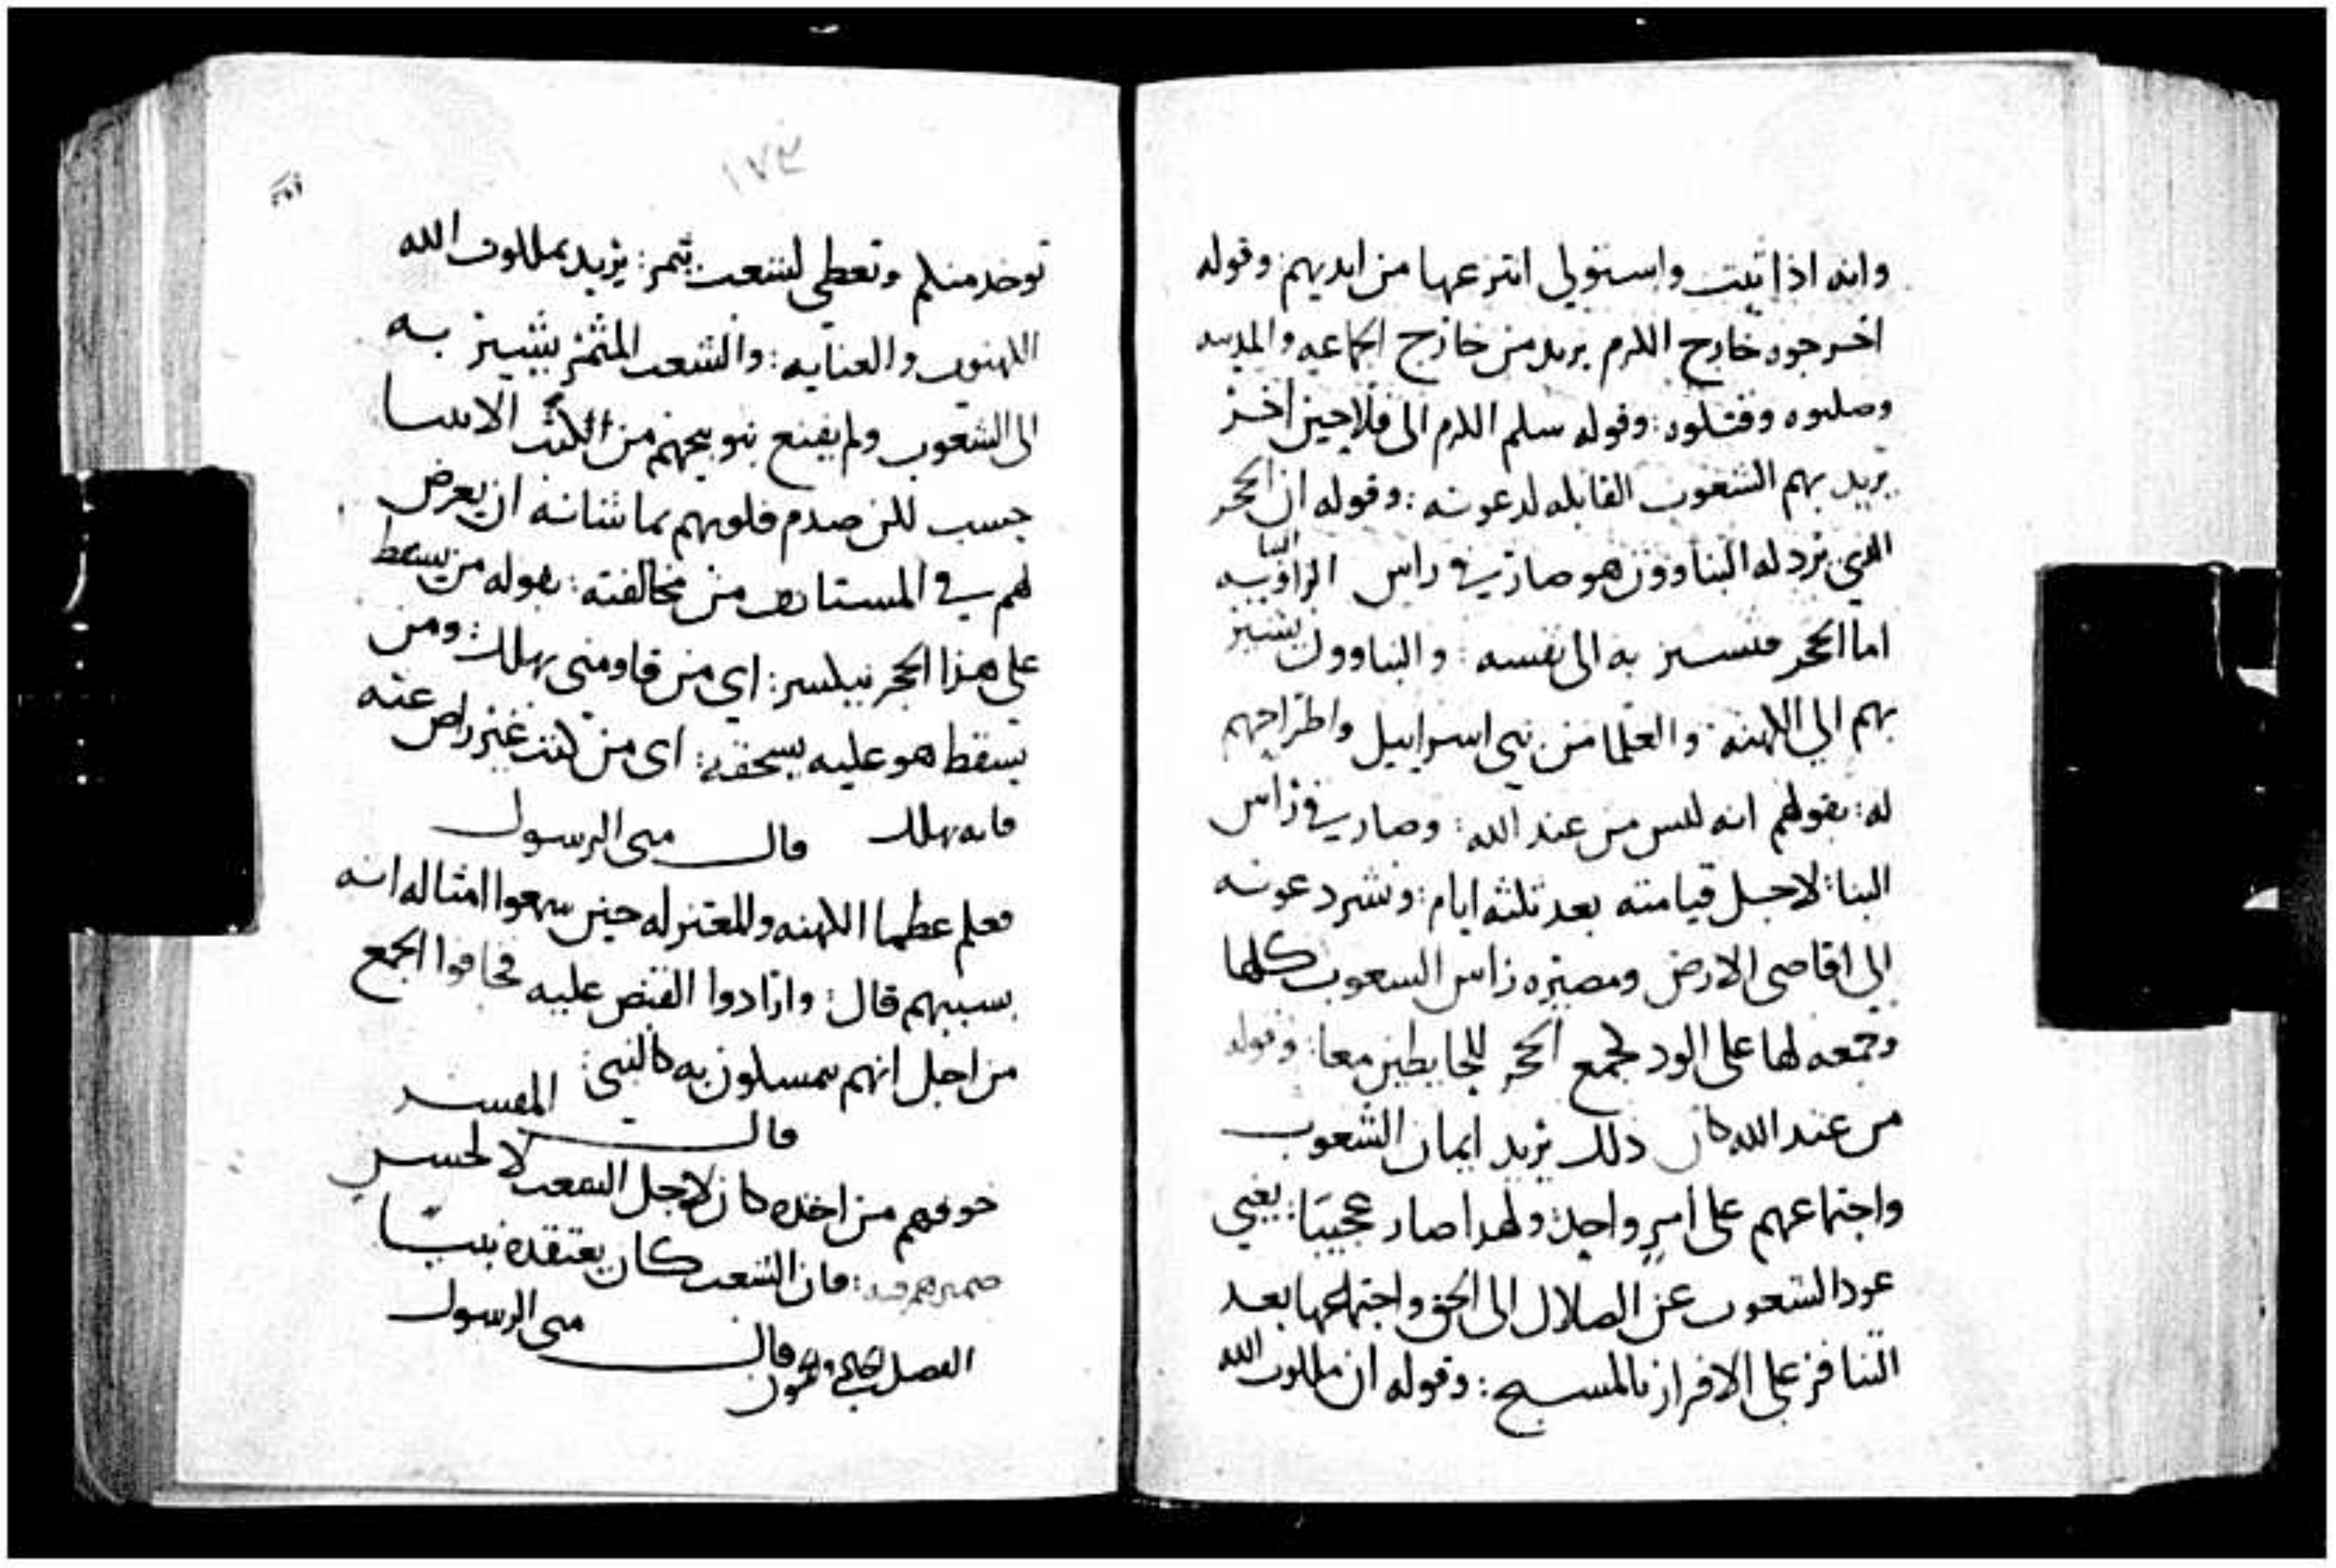 وانه اذا ثبت واستولى انتزعها من ايديهم: وقوله
اخرجوه خارج الكرم يريد من خارج الجماعه والمدينه
وصلبوه وقتلوه: وقوله سلم الكرم الى فلاحين اخر
يريد بهم الشعوب القابله لدعوته: وقوله ان الحجر
الذي نرد له البناوون هو صار في راس البنا الزاويه
اما الحجر فيشير به الى نفسه: والبناوون يشير
بهم الي الكهنه والعلما من بني اسراييل واطراحهم
له: بقولهم انه ليس من عند الله: وصار في راس
البنا: لاجل قيامته بعد ثلثه ايام: ونشر دعوته
الى اقاصي الارض ومصيره راس الشعوب كلها
وجمعه لها على الود لجمع الحجر للحايطين معا: وقوله
من عند الله كان ذلك يريد ايمان الشعوب
واجتماعهم على امر واحد: ولهدا صار عجيبا: يعني
عود الشعوب عن الضلال الى الحق واجتماعها بعد
التنافر على الاقرار بالمسيح: وقوله ان ملكوت الله
١٧٣
توخد منكم وتعطى لشعب يثمر: يريد بملكوت الله
الكهنوت والعنايه: والشعب المثمر يشير به
الى الشعوب ولم يقنع بتوبيخهم من الكتب الاسا
حسب لكن صدم قلوبهم بما شانه ان يعرض
لهم في المستانف من مخالفته: بقوله من يسقط
على هذا الحجر ينكسر: اي من قاومني يهلك: ومن
يسقط هو عليه يسحقه: اى من كنت غير راض عنه
فانه يهلك قال متى الرسول
فعلم عظما الكهنه والمعتزله حين سمعوا امثاله انه
بسببهم قال: وارادوا القبض عليه فخافوا الجمع
من اجل انهم متمسكون به كالنبي: المفسر
قال
خوفهم من اخذه كان لاجل الشعب لا لحسن
ضميرهم فيه: فان الشعب كان يعتقده نبيا
قال متى الرسول
الفصل